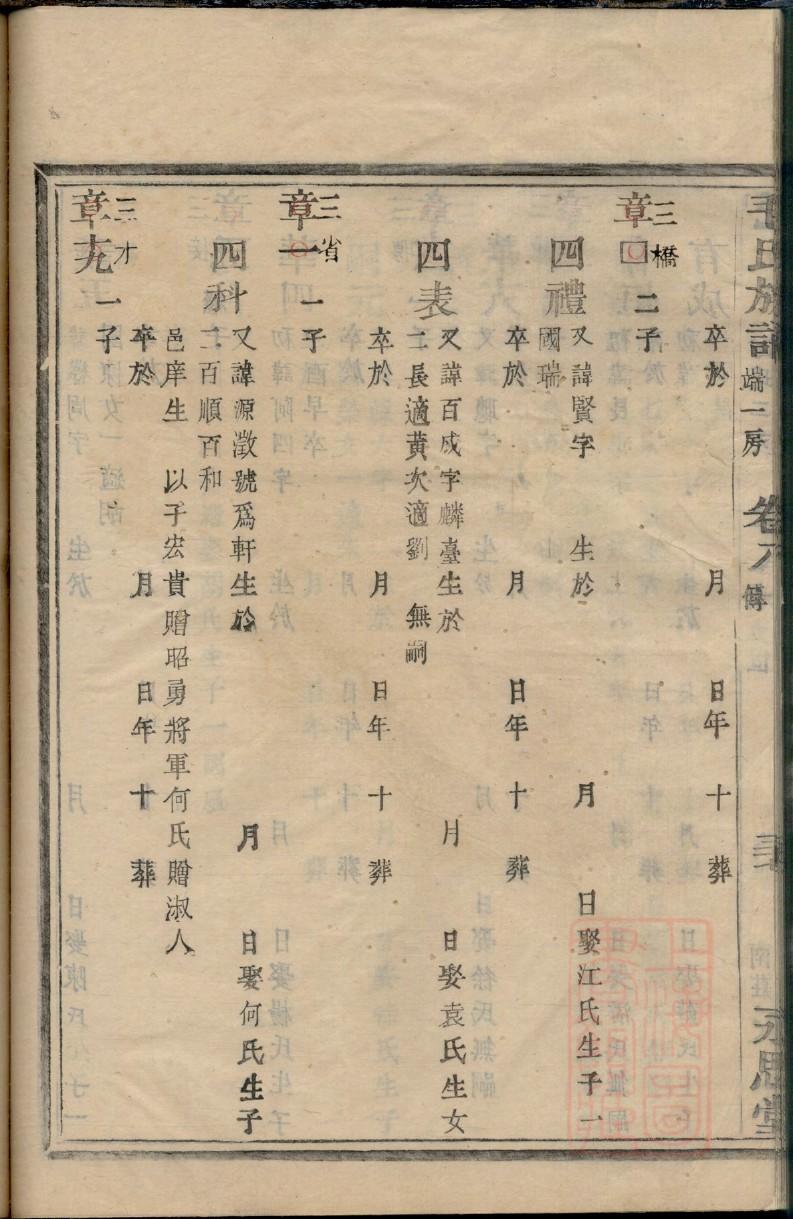 毛氏族譜 端一房 卷六 傳 永思堂
卒於 月 日年 十 葬
三橋
章□ 二子
四禮 又諱賢字 生於 月 日娶江氏生子一
國瑞
卒於 月 日年 十 葬
四表 又諱百成字麟臺生於 月 日娶袁氏生女
二長適黃次適劉 無嗣
卒於 月 日年 十 葬
三省
章一 一子
四科 又諱源澂號爲軒生於 月 日娶何氏生子
二百順百和
邑庠生 以子宏貴贈昭勇將軍何氏贈淑人
卒於 月 日年 十 葬
三才
章堯 一子